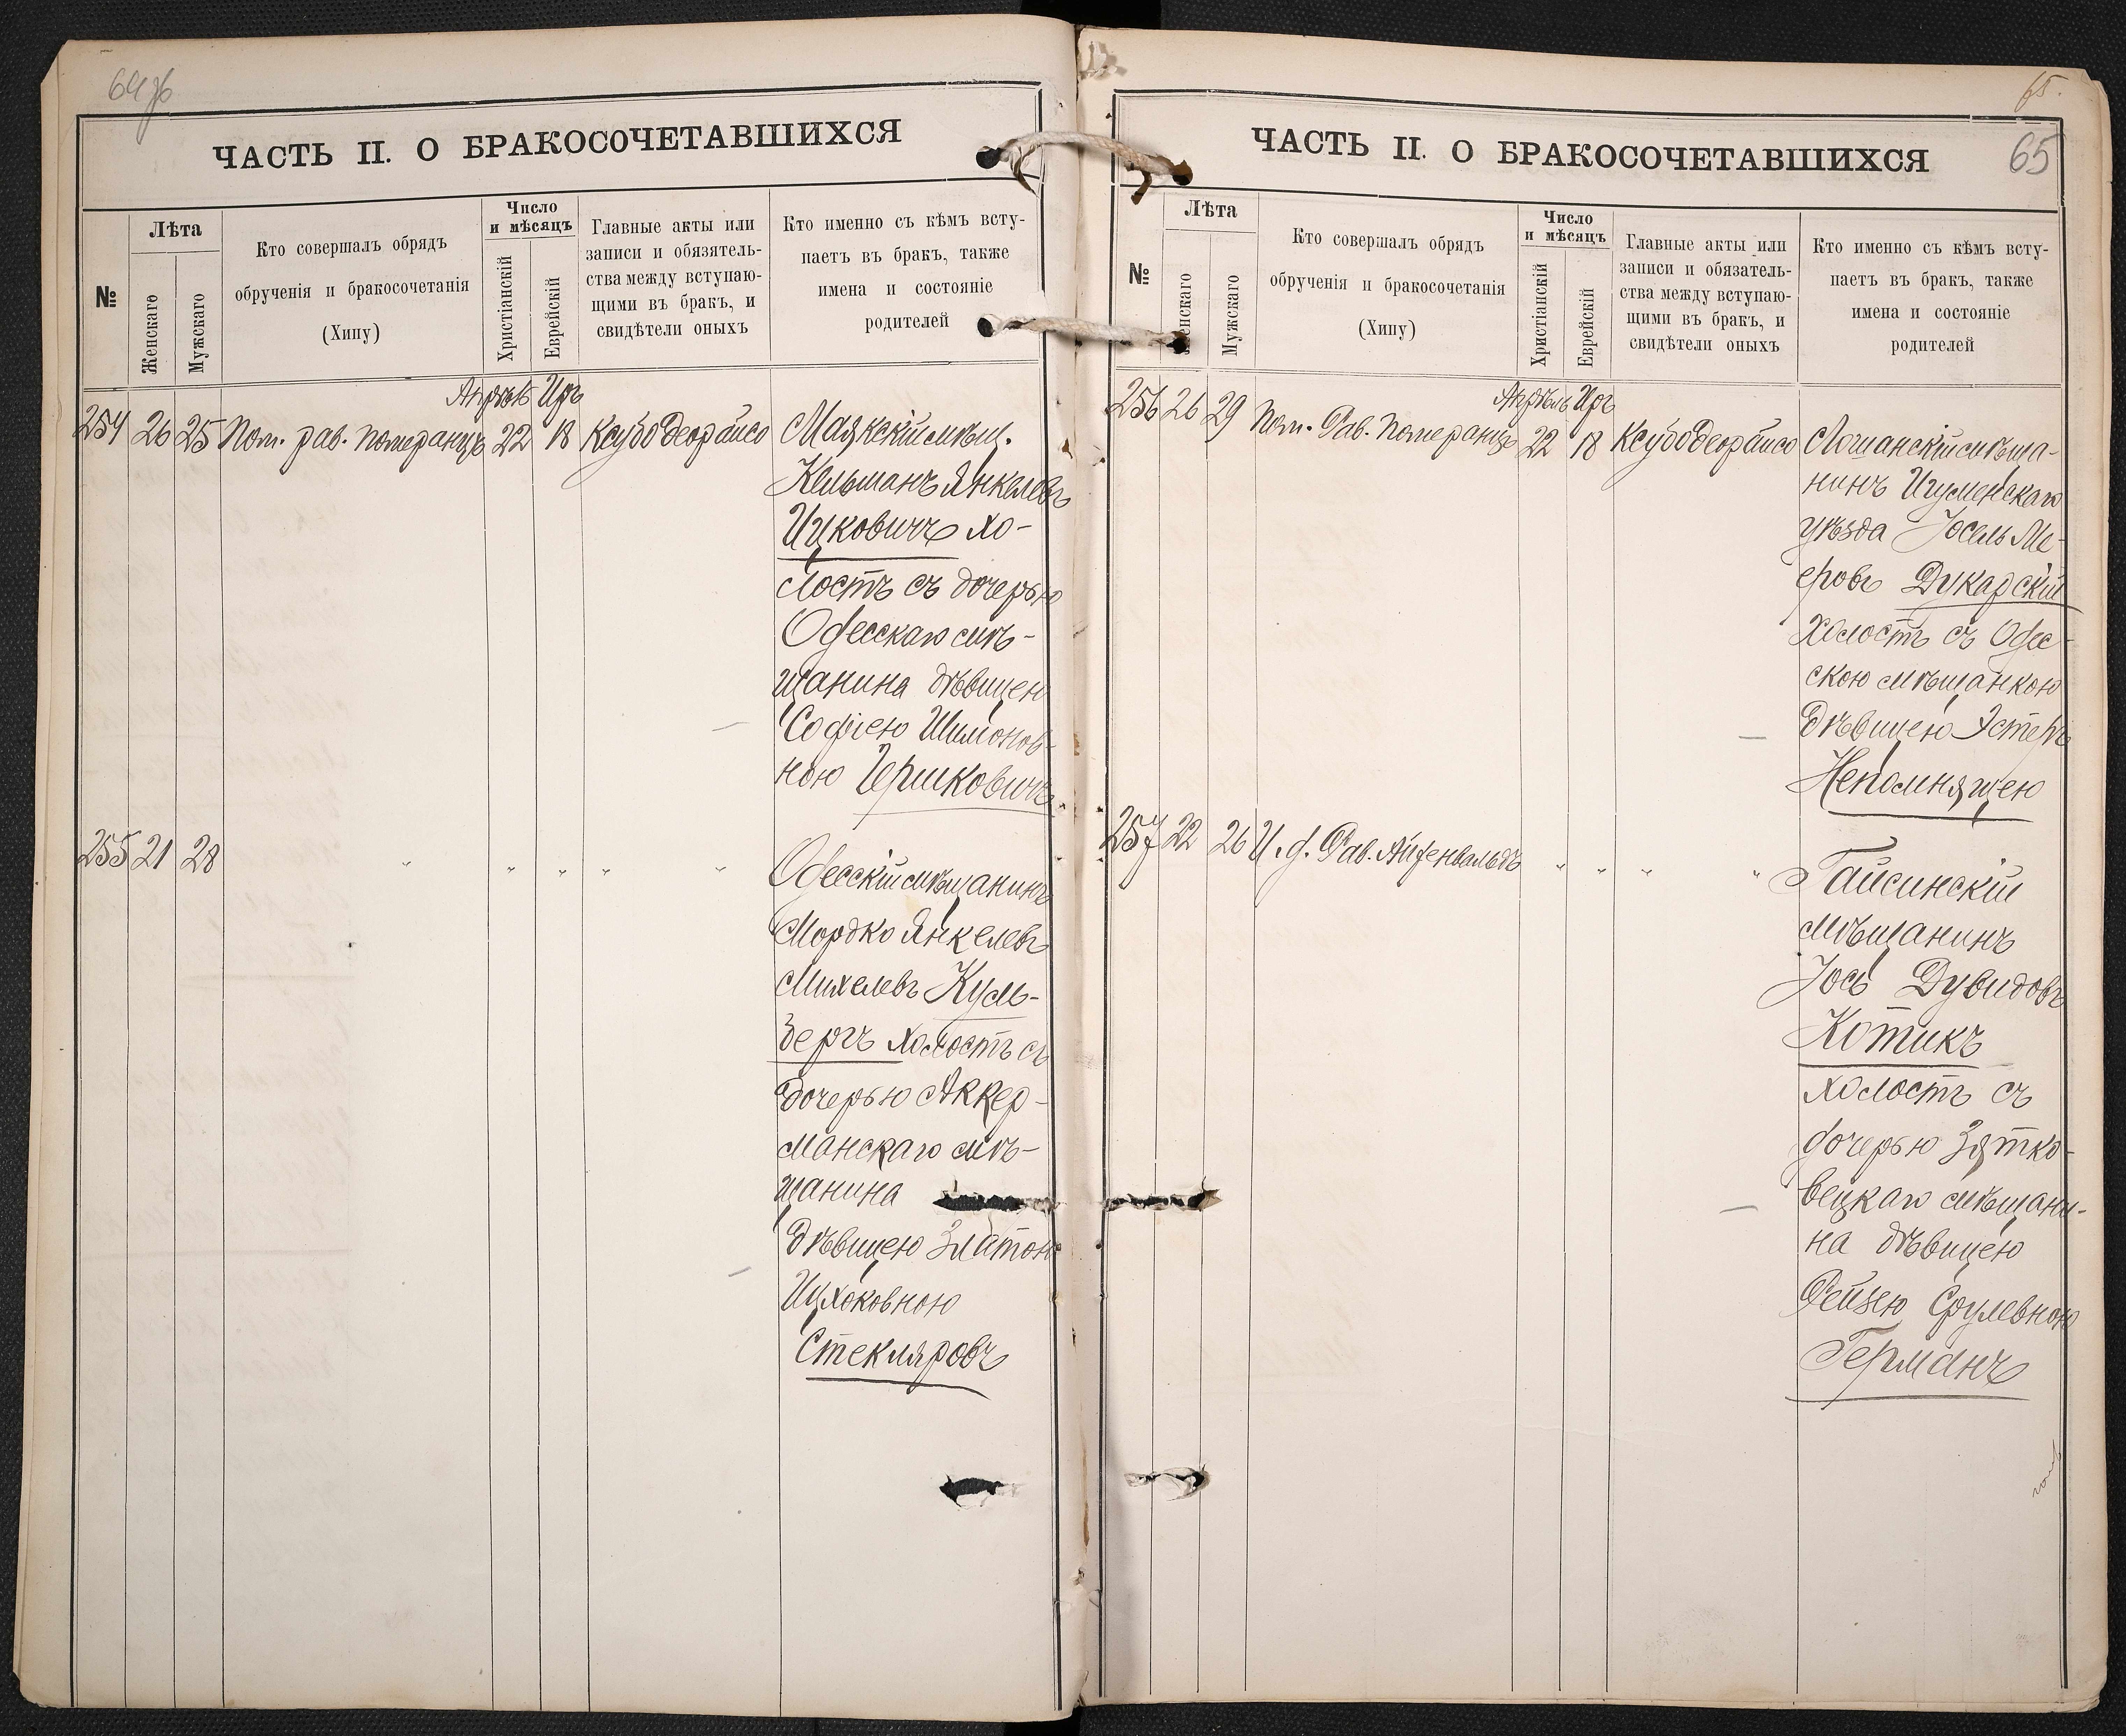 65.
ЧАСТЬ II. О БРАКОСОЧЕТАВШИХСЯ
№
Лѣта
Женскаго
Мужскаго
Кто совершалъ обрядъ
обрученія и бракосочетанія
(Хипу)
Число
и мѣсяцъ
Христіанскій
Еврейскій
Главные акты или
записи и обязятель-
ства между вступаю-
щими въ бракъ, и
свидѣтели оныхъ
Кто именно съ кѣмъ всту-
паетъ въ бракъ, также
имена и состояніе
родителей
Апрѣль Иръ
254 26 25 Пом. рав. Померанцъ 22 18 Ксубо Деорайсо
Маякскій мѣщ.
Кельманъ Янкелевъ
Ицковичъ хо-
лостъ съ дочерью
Одесскаго мѣ-
щанина дѣвицею
Софіею Шимонов-
ною Гершковичъ
255 21 28 " " " " "
Одесскій мѣщанинъ
Мордко Янкелевъ
Михелевъ Куль-
бергъ холостъ съ
дочерью Аккер-
манскаго мѣ-
щанина
дѣвицею Златою
Ицхоковною
Стекляровъ
ЧАСТЬ II. О БРАКОСОЧЕТАВШИХСЯ
65
№
Лѣта
Женскаго
Мужскаго
Кто совершалъ обрядъ
обрученія и бракосочетанія
(Хипу)
Число
и мѣсяцъ
Христіанскій
Еврейскій
Главные акты или
записи и обязатель-
ства между вступаю-
щими въ бракъ, и
свидѣтели оныхъ
Кто именно съ кѣмъ всту-
паетъ въ бракъ, также
имена и состояніе
родителей
Апрѣль Иръ
256 26 29 Пом. Рав. Померанцъ 22 18 Ксубо Деорайсо
Логшанскій мѣща-
нинъ Игуменскаго
уѣзда Іосель Ме-
еровъ Дукарскій
холостъ съ Одес-
скою мѣщанкою
дѣвицею Эстеръ
Непомнящею
257 22 26 И. д. Рав. Айзенвальдъ " " " "
Гайсинскій
мѣщанинъ
Іось Дувидовъ
Котикъ
холостъ съ
дочерью Зятко-
вецкаго мѣщани-
на дѣвицею
Фейгею Срулевною
Германъ